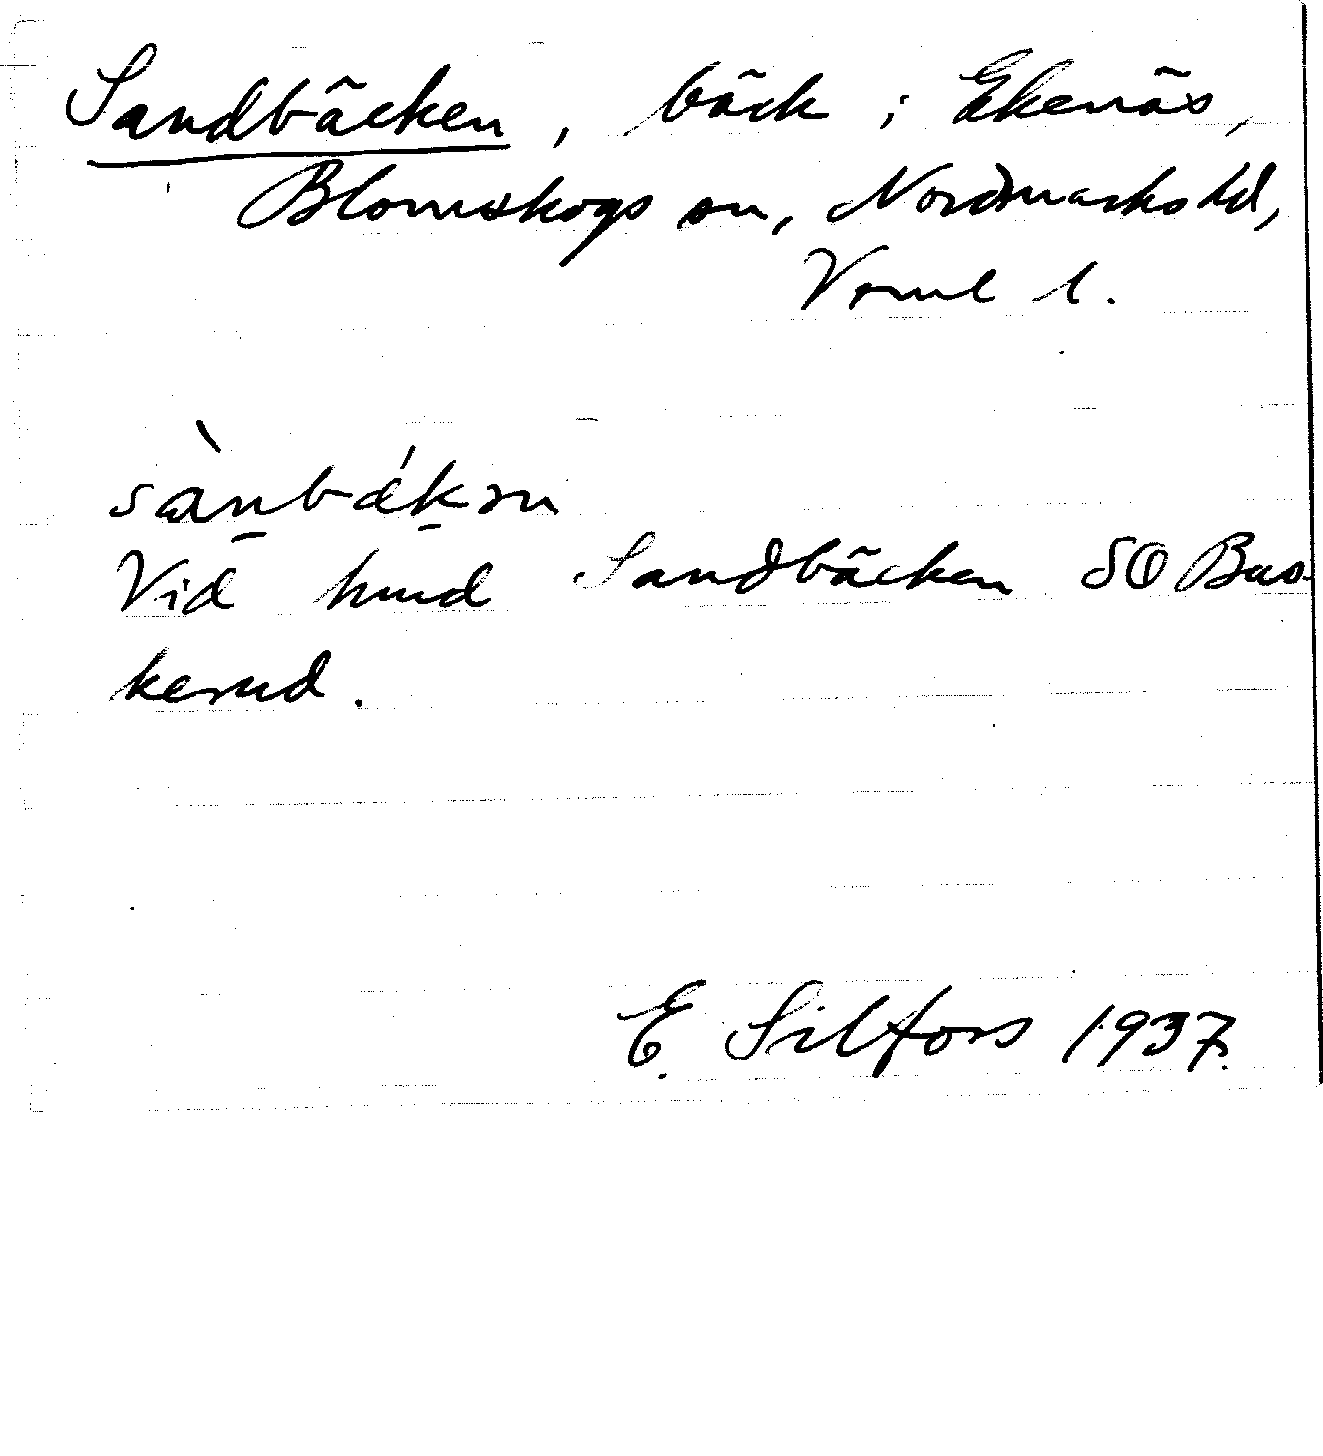 Sandbäcken, bäck i Ekenäs,
Blomskogs sn, Nordmarks hd,
Vrml l.
Vid hmd Sandbäcken SO Bus-
kerud.
E. Silfors 1937.